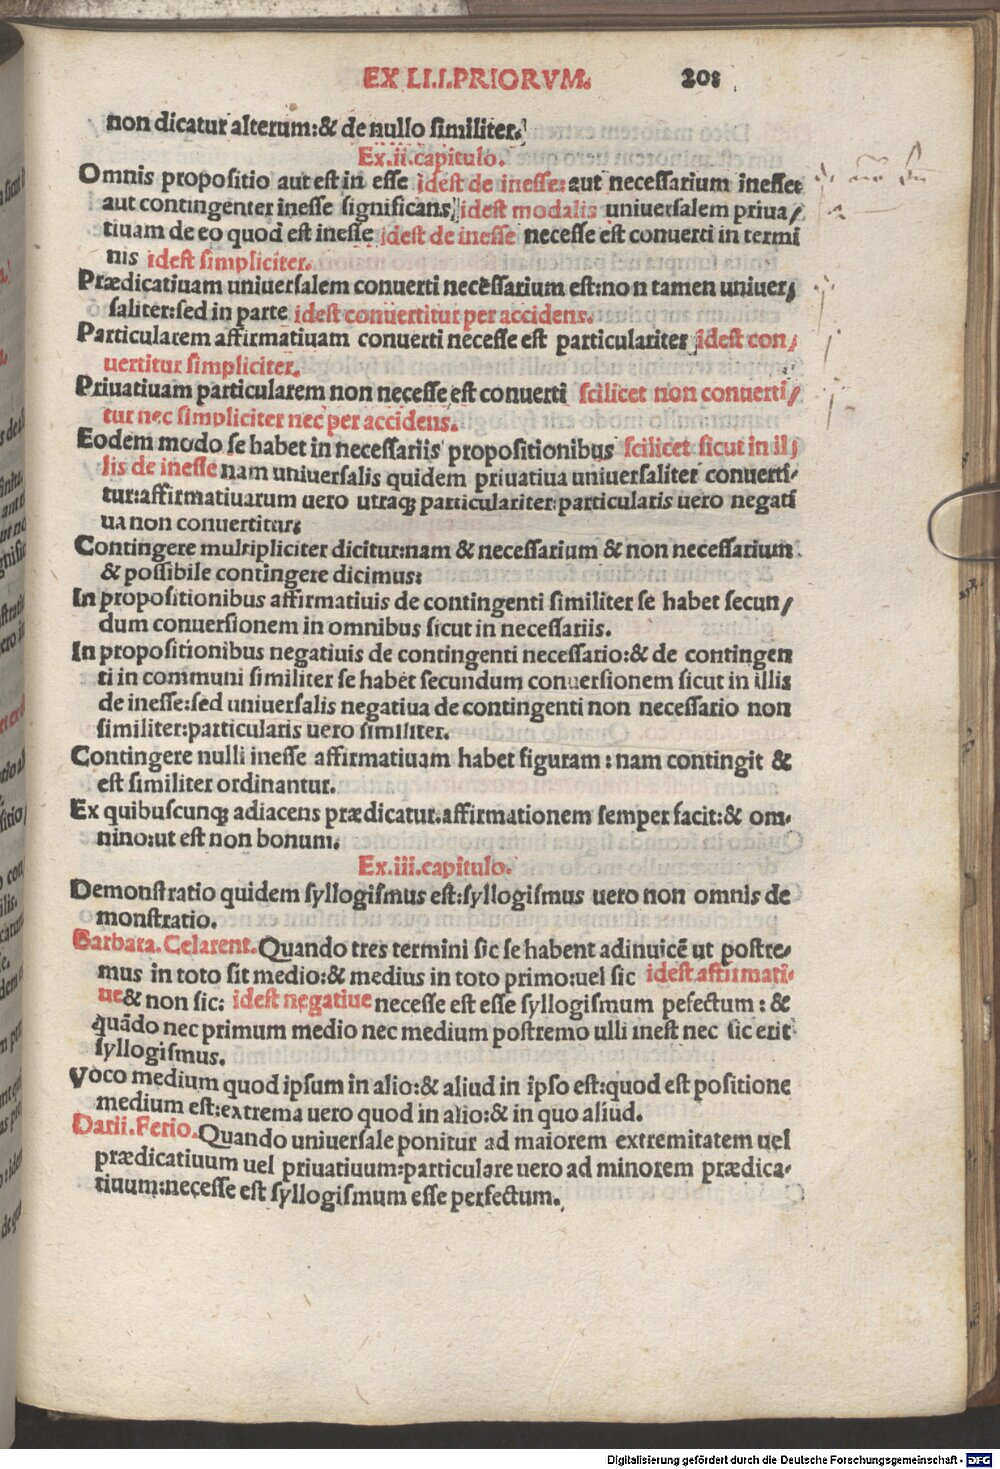 EX LI.I.PRIORVM. 208
non dicatur alterum:& de nullo similiter.
Ex.ii.capitulo.
Omnis propositio aut est in esse idest de inesse: aut necessarium inesset
aut contingenter inesse significans, idest modalis uniuersalem priua/
tiuam de eo quod est inesse idest de inesse necesse est conuerti in termi
nis idest simpliciter.
Prædicatiuam uniuersalem conuerti necessarium est:non tamen uniuer,
saliter:sed in parte idest conuertitur per accidens.
Particularem affirmatiuam conuerti necesse est particulariter idest con/
uertitur simpliciter.
Priuatiuam particularem non necesse est conuerti scilicet non conuerti/
tur nec simpliciter nec per accidens.
Eodem modo se habet in necessariis propositionibus scilicet sicut in il/
lis de inesse nam uniuersalis quidem priuatiua uniuersaliter conuerti-
tur:affirmatiuarum uero utraqꝫ particulariter:particularis uero negati
ua non conuertitur:
Contingere multipliciter dicitur:nam & necessarium & non necessarium
& possibile contingere dicimus:
In propositionibus affirmatiuis de contingenti similiter se habet secun/
dum conuersionem in omnibus sicut in necessariis.
In propositionibus negatiuis de contingenti necessario:& de contingen
ti in communi similiter se habet secundum conuersionem sicut in illis
de inesse:sed uniuersalis negatiua de contingenti non necessario non
similiter:particularis uero similiter.
Contingere nulli inesse affirmatiuam habet figuram : nam contingit &
est similiter ordinantur.
Ex quibuscunqꝫ adiacens prædicatur.affirmationem semper facit:& om-
nino:ut est non bonum.
Ex.iii.capitulo.
Demonstratio quidem syllogismus est:syllogismus uero non omnis de
monstratio.
Barbara.Celarent.Quando tres termini sic se habent adinuicē ut postre-
mus in toto sit medio:& medius in toto primo:uel sic idest affirmati-
ue& non sic: idest negatiue necesse est esse syllogismum pefectum : &
quādo nec primum medio nec medium postremo ulli inest nec sic erit
syllogismus.
Voco medium quod ipsum in alio:& aliud in ipso est:quod est positione
medium est:extrema uero quod in alio:& in quo aliud.
Darii.Ferio.Quando uniuersale ponitur ad maiorem extremitatem uel
prædicatiuum uel priuatiuum:particulare uero ad minorem prædica-
tiuum:necesse est syllogismum esse perfectum.
Digitalisierung gefördert durch die Deutsche Forschungsgemeinschaft - DFG